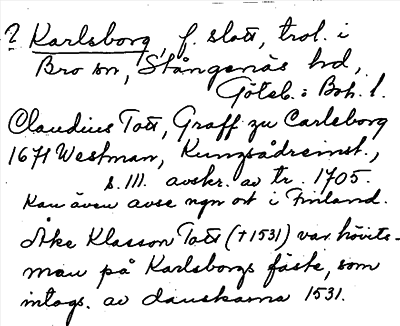 ? Karlsborg, f. slott, trol. i
Bro sn, Stångenäs hd,
Göteb. o. Boh. l.
Claudius Tott, Graff zu Carleborg
1671 Westman, Kungsådreinst.,
s. 111. avskr. av tr. 1705.
Kan även avse ngn ort i Finland.
Åke Klasson Tott († 1531) var hövits-
man på Karlsborgs fäste, som
intogs. av danskarna 1531.